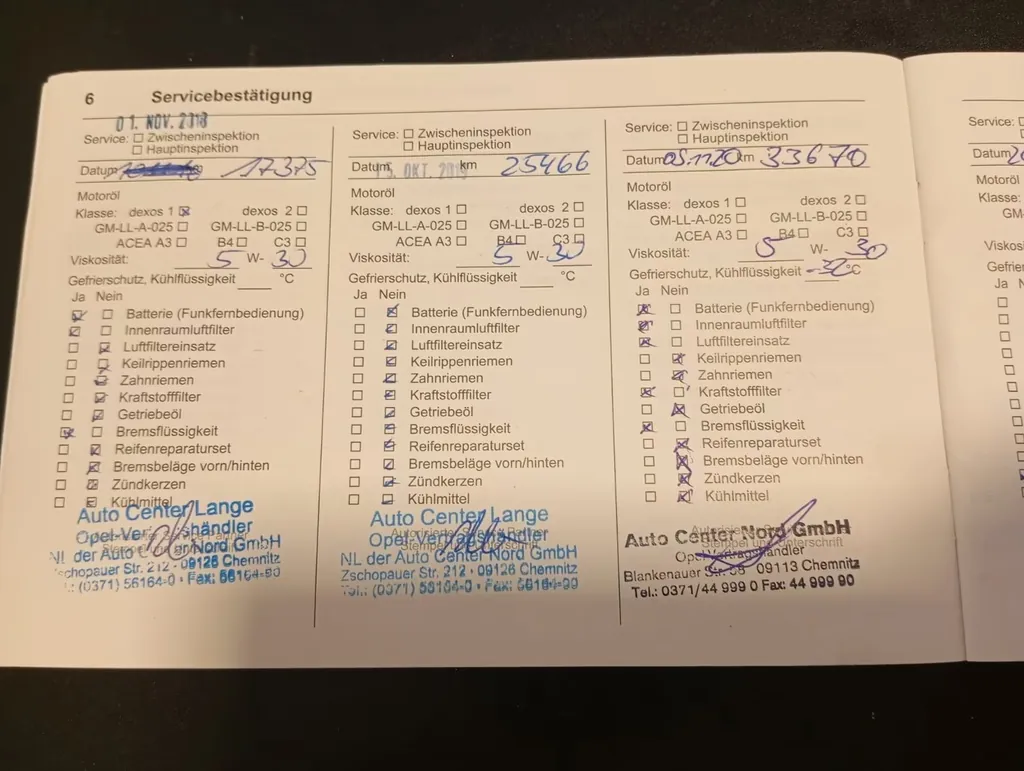 6 Servicebestätigung
01. NOV. 2018
Service: Zwischeninspektion
Hauptinspektion
Datum 17375
Motoröl
Klasse: dexos 1 dexos 2
GM-LL-A-025 GM-LL-B-025
ACEA A3 B4 C3
Viskosität: 5 W- 30
Gefrierschutz, Kühlflüssigkeit °C
Ja Nein
Batterie (Funkfernbedienung)
Innenraumluftfilter
Luftfiltereinsatz
Keilrippenriemen
Zahnriemen
Kraftstofffilter
Getriebeöl
Bremsflüssigkeit
Reifenreparaturset
Bremsbeläge vorn/hinten
Zündkerzen
Kühlmittel
Auto Center Lange
NL der Auto Center Nord GmbH
Zschopauer Str. 212 · 09126 Chemnitz
Tel.: (0371) 56164-0 · Fax: 56164-99
Service: Zwischeninspektion
Hauptinspektion
Datum OKT. km 25466
Motoröl
Klasse: dexos 1 dexos 2
GM-LL-A-025 GM-LL-B-025
ACEA A3 B4 C3
Viskosität: 5 W- 30
Gefrierschutz, Kühlflüssigkeit °C
Ja Nein
Batterie (Funkfernbedienung)
Innenraumluftfilter
Luftfiltereinsatz
Keilrippenriemen
Zahnriemen
Kraftstofffilter
Getriebeöl
Bremsflüssigkeit
Reifenreparaturset
Bremsbeläge vorn/hinten
Zündkerzen
Kühlmittel
Auto Center Lange
Opel-Vertragshändler
NL der Auto Center Nord GmbH
Zschopauer Str. 212 · 09126 Chemnitz
Tel.: (0371) 56164-0 · Fax: 56164-99
Service: Zwischeninspektion
Hauptinspektion
Datum 05.11.20 km 33670
Motoröl
Klasse: dexos 1 dexos 2
GM-LL-A-025 GM-LL-B-025
ACEA A3 B4 C3
Viskosität: 5 W- 30
Gefrierschutz, Kühlflüssigkeit °C
Ja Nein
Batterie (Funkfernbedienung)
Innenraumluftfilter
Luftfiltereinsatz
Keilrippenriemen
Zahnriemen
Kraftstofffilter
Getriebeöl
Bremsflüssigkeit
Reifenreparaturset
Bremsbeläge vorn/hinten
Zündkerzen
Kühlmittel
Auto Center Nord GmbH
Opel-Vertragshändler
Blankenauer Str. 09113 Chemnitz
Tel.: 0371/44 999 0 Fax: 44 999 90
Service:
Datum
Motoröl
Klasse: